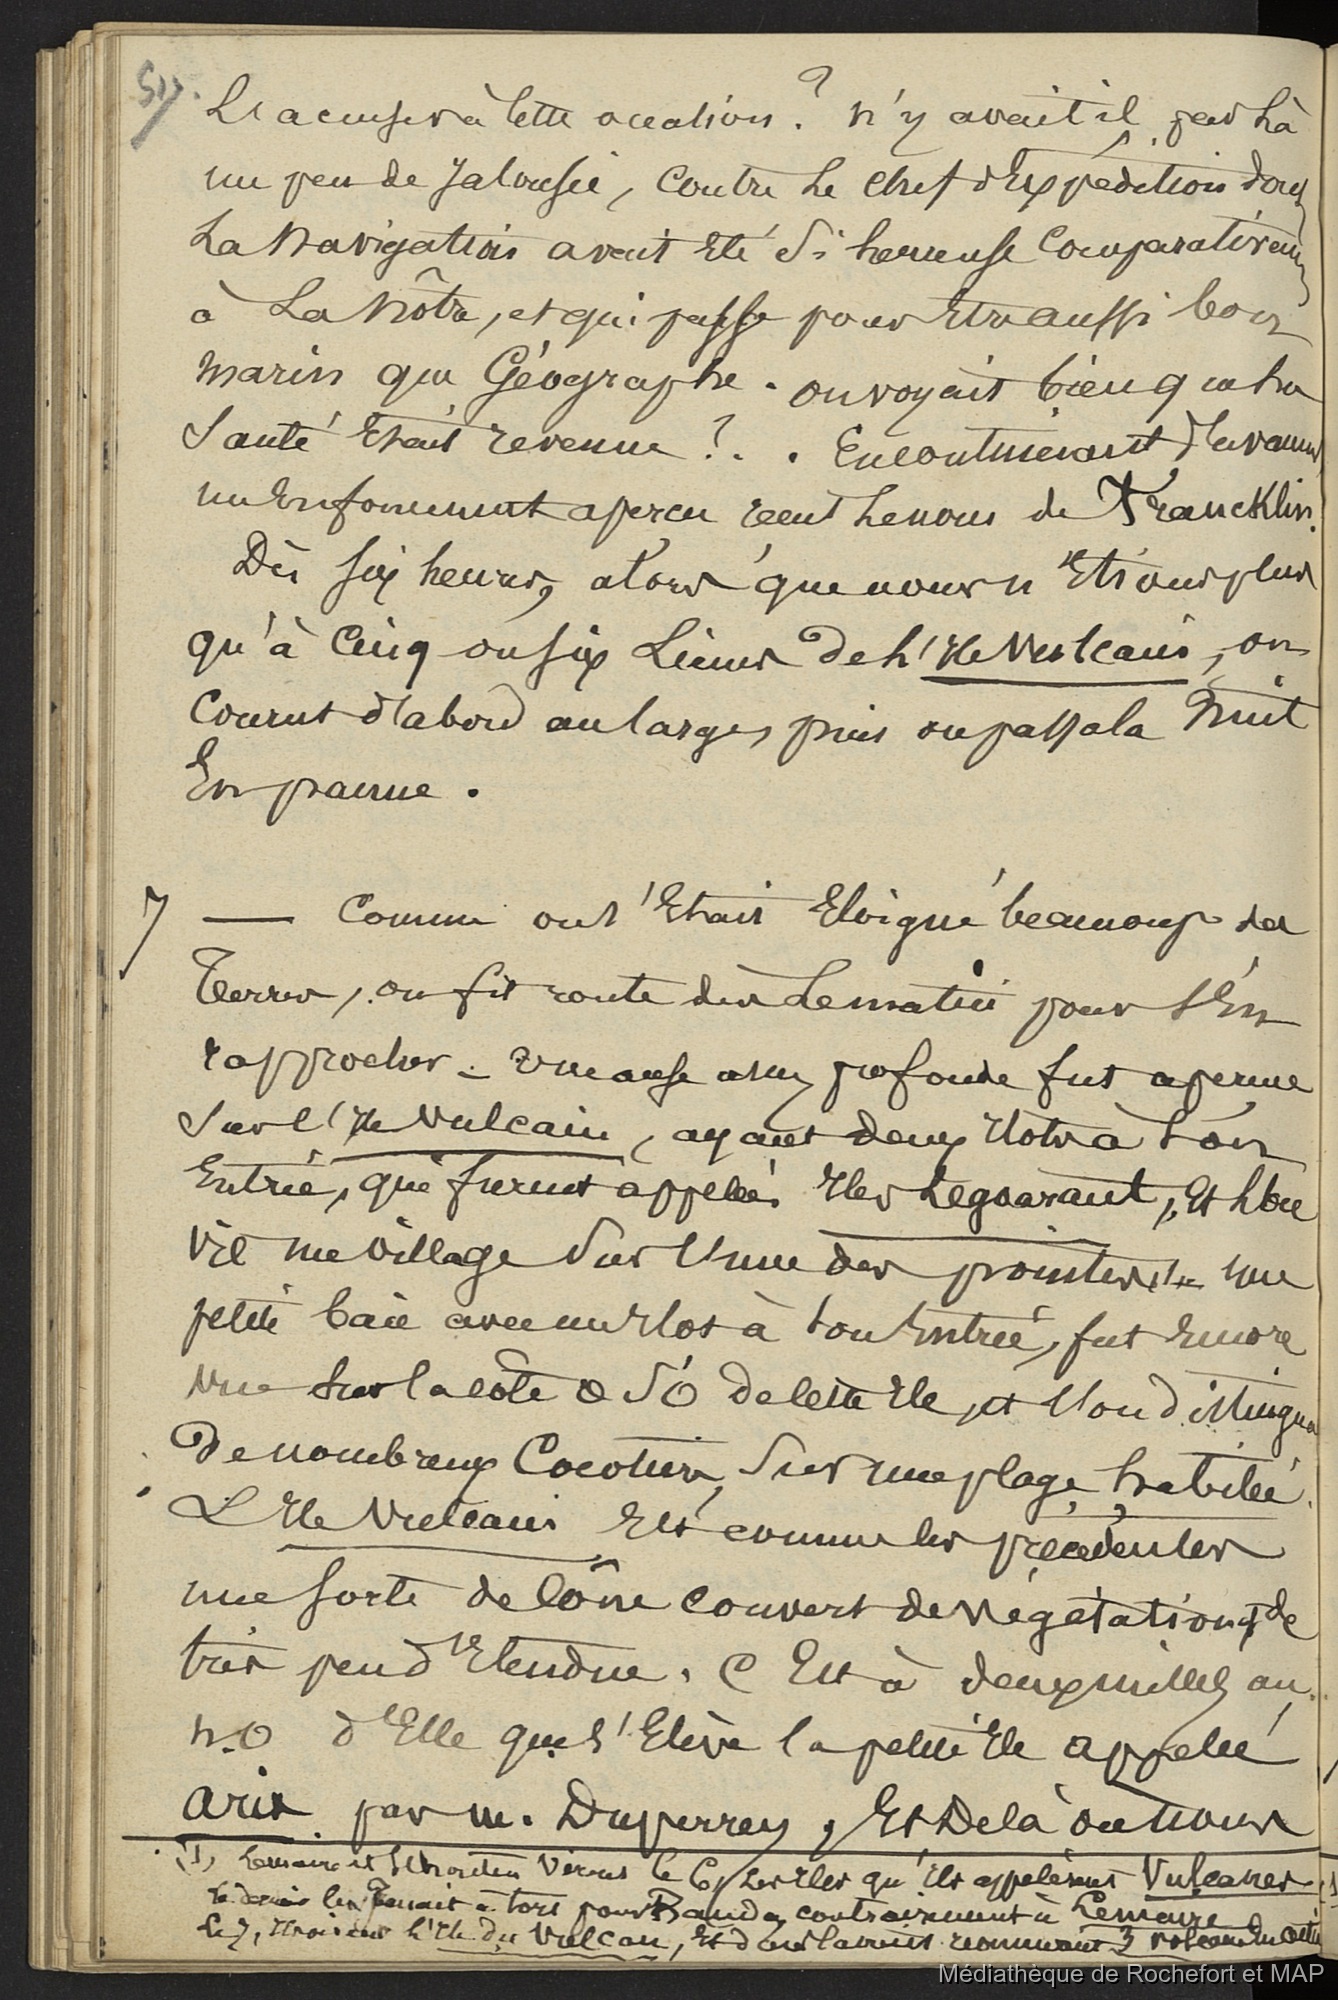 517.
Le accuser à cette occasion ? n'y avait il pas Là
un peu de Jalousie, Contre Le Chef d'Expédition dont
La Navigation avait Eté Si heureuse Comparativement
à La Nôtre, et qui passe pour Etre aussi bon
marin que Géographe. on voyait bien que La
Santé Etait revenue ?. . En continuant d'avancer
un Enfoncement aperçu recut Le nom de Francklin.
Dès Six heures, alors que nous n'Etions plus
qu'à Cinq ou Six Lieues De L'Ile Vulcain, on
Courut d'abord au large, puis on passa la Nuit
En panne.
7 — Comme on s'Etait Eloigné beaucoup des
Terres, on fit route dès Le matin pour S'En
rapprocher. Une anse assez profonde fut aperçue
Sur l'Ile Vulcain, ayant deux Ilots à Son
Entrée, qui furent appelés Iles Legoarant, Et L'on
Vit un Village Sur L'une des pointes, une
petite baie avec un Ilot à Son Entrée, fut Encore
Vue Sur la côte SO De cette Ile, et L'on distingua
De nombreux Cocotiers, Sur une plage habitée.
L'Ile Vulcain Est comme les précédentes
une Sorte de Cône couvert de Végétation, & de
très peu d'Etendue. C'Est à deux milles au
N.O d'Elle que S'Elève la petite Ile appelée
Aris par m. Duperrey, Et De là où Nous
(1) Lemaire et Schouten Virent le 6, Les Iles qu'ils appelèrent Vulcanes
Le dernier les Prenait à tort pour Banda, contrairement à Lemaire
Le 7, l'Ile du Vulcan, Et 3 volcans
Médiathèque de Rochefort et MAP